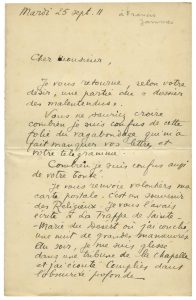 Mardi 25 sept. 11
à Francis
Jammes
Cher Monsieur,
Je vous retourne, selon votre
désir, une partie du « dossier
des malentendus ».
Vous ne sauriez croire
combien je suis confus de cette
folie du vagabondage qui m'a
fait manquer vos lettres et
votre télégramme.
Combien je suis confus aussi
de votre bonté.
Je vous renvoie volontiers ma
carte postale. C'est un souvenir
des Religieux. Je vous l'avais
écrite à La Trappe de Sainte-
Marie du Désert où j'ai couché
une nuit de grandes manœuvres
Au soir, je me suis glissé
dans une tribune de la Chapelle
et j'ai écouté Complies dans
l'obscurité profonde